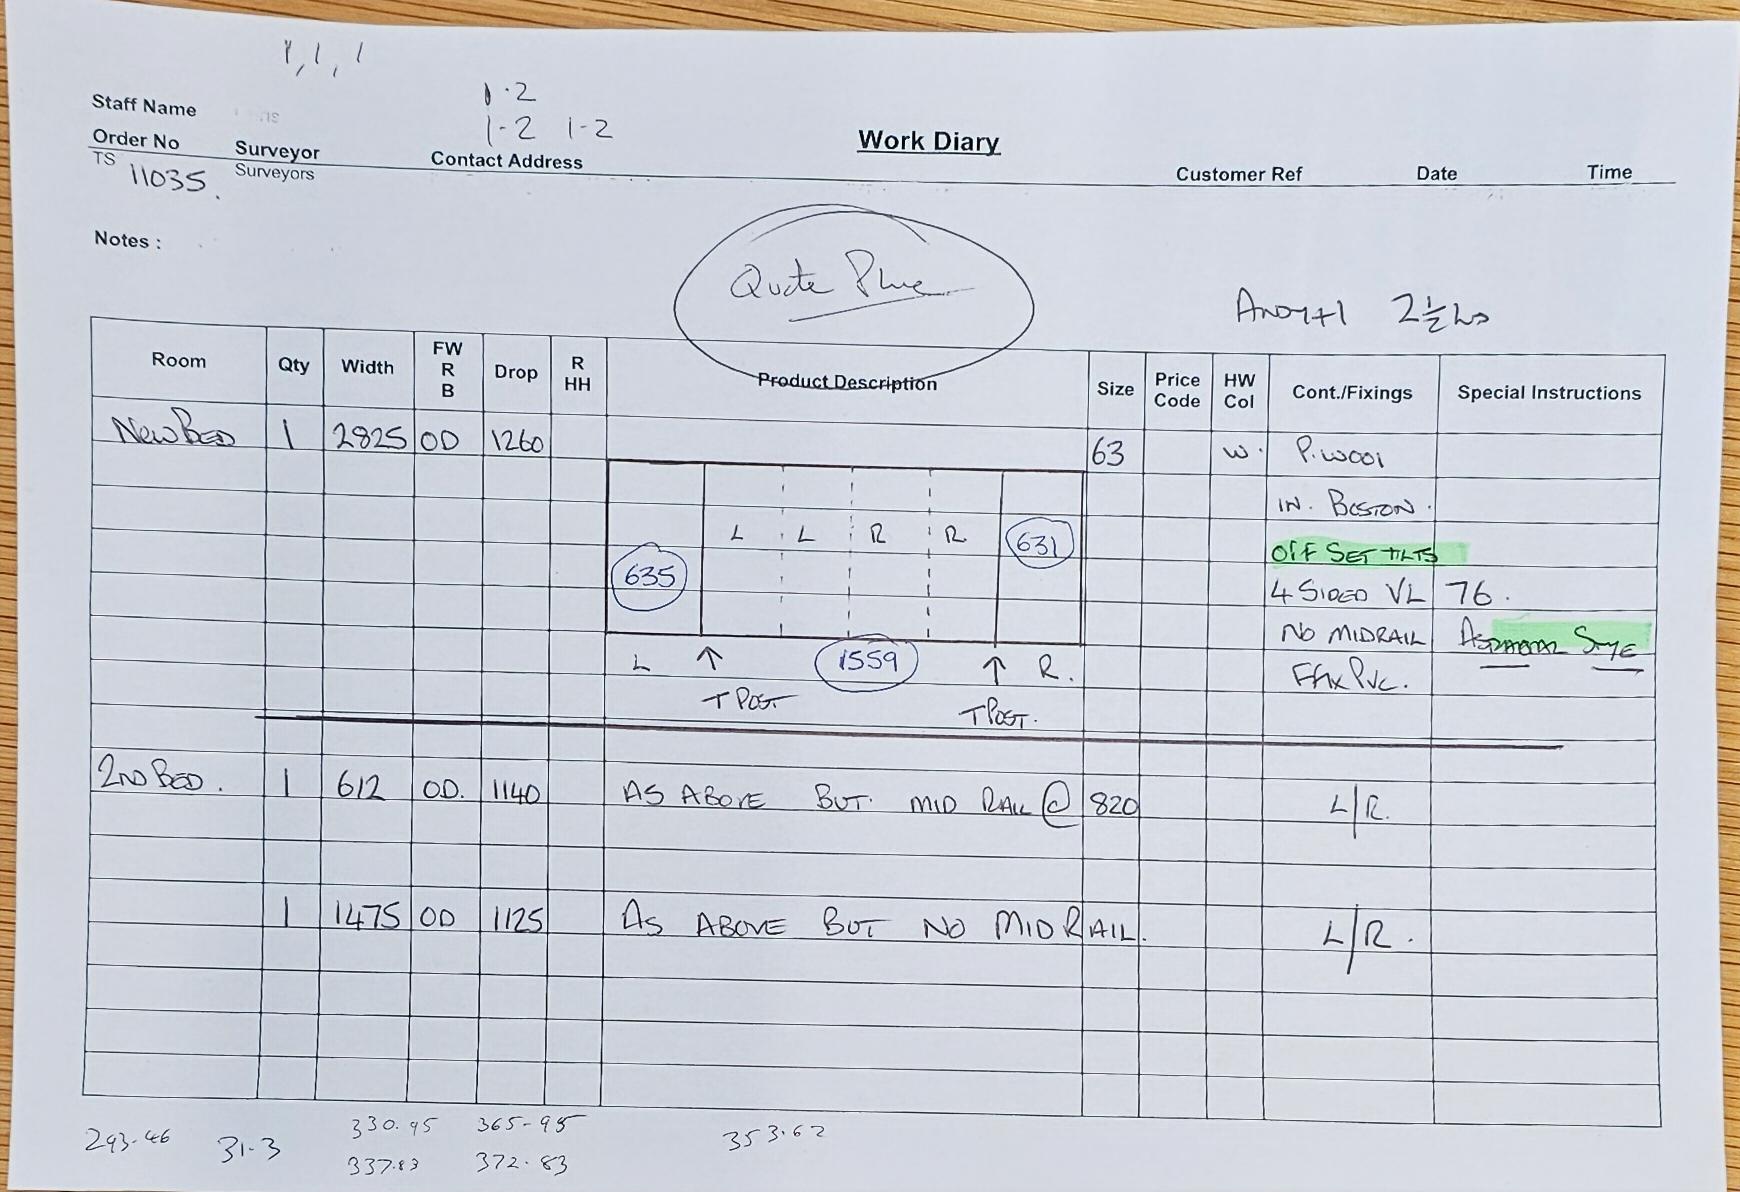 1, 1, 1
Staff Name
1.2
1-2 1-2
Order No Surveyor Contact Address Work Diary Customer Ref Date Time
TS 11035. Surveyors
Notes :
Quote Plse
2½ hrs
Room Qty Width FW R B Drop R HH Product Description Size Price Code HW Col Cont./Fixings Special Instructions
New Bed 1 2825 OD 1260 63 W. P.W001
IN. BOSTON.
L L R R 631 OFF SET TILTS
635 4 SIDED VL 76.
NO MIDRAIL
L 1559 R. FFix PVC.
T POST T POST.
2ND BED. 1 612 O.D. 1140 AS ABOVE BUT. MID RAIL @ 820 L/R.
1 1475 OD 1125 AS ABOVE BUT NO MIDRAIL. L/R.
293.46 31.3 330.95 365-95 353.62
337.83 372.83